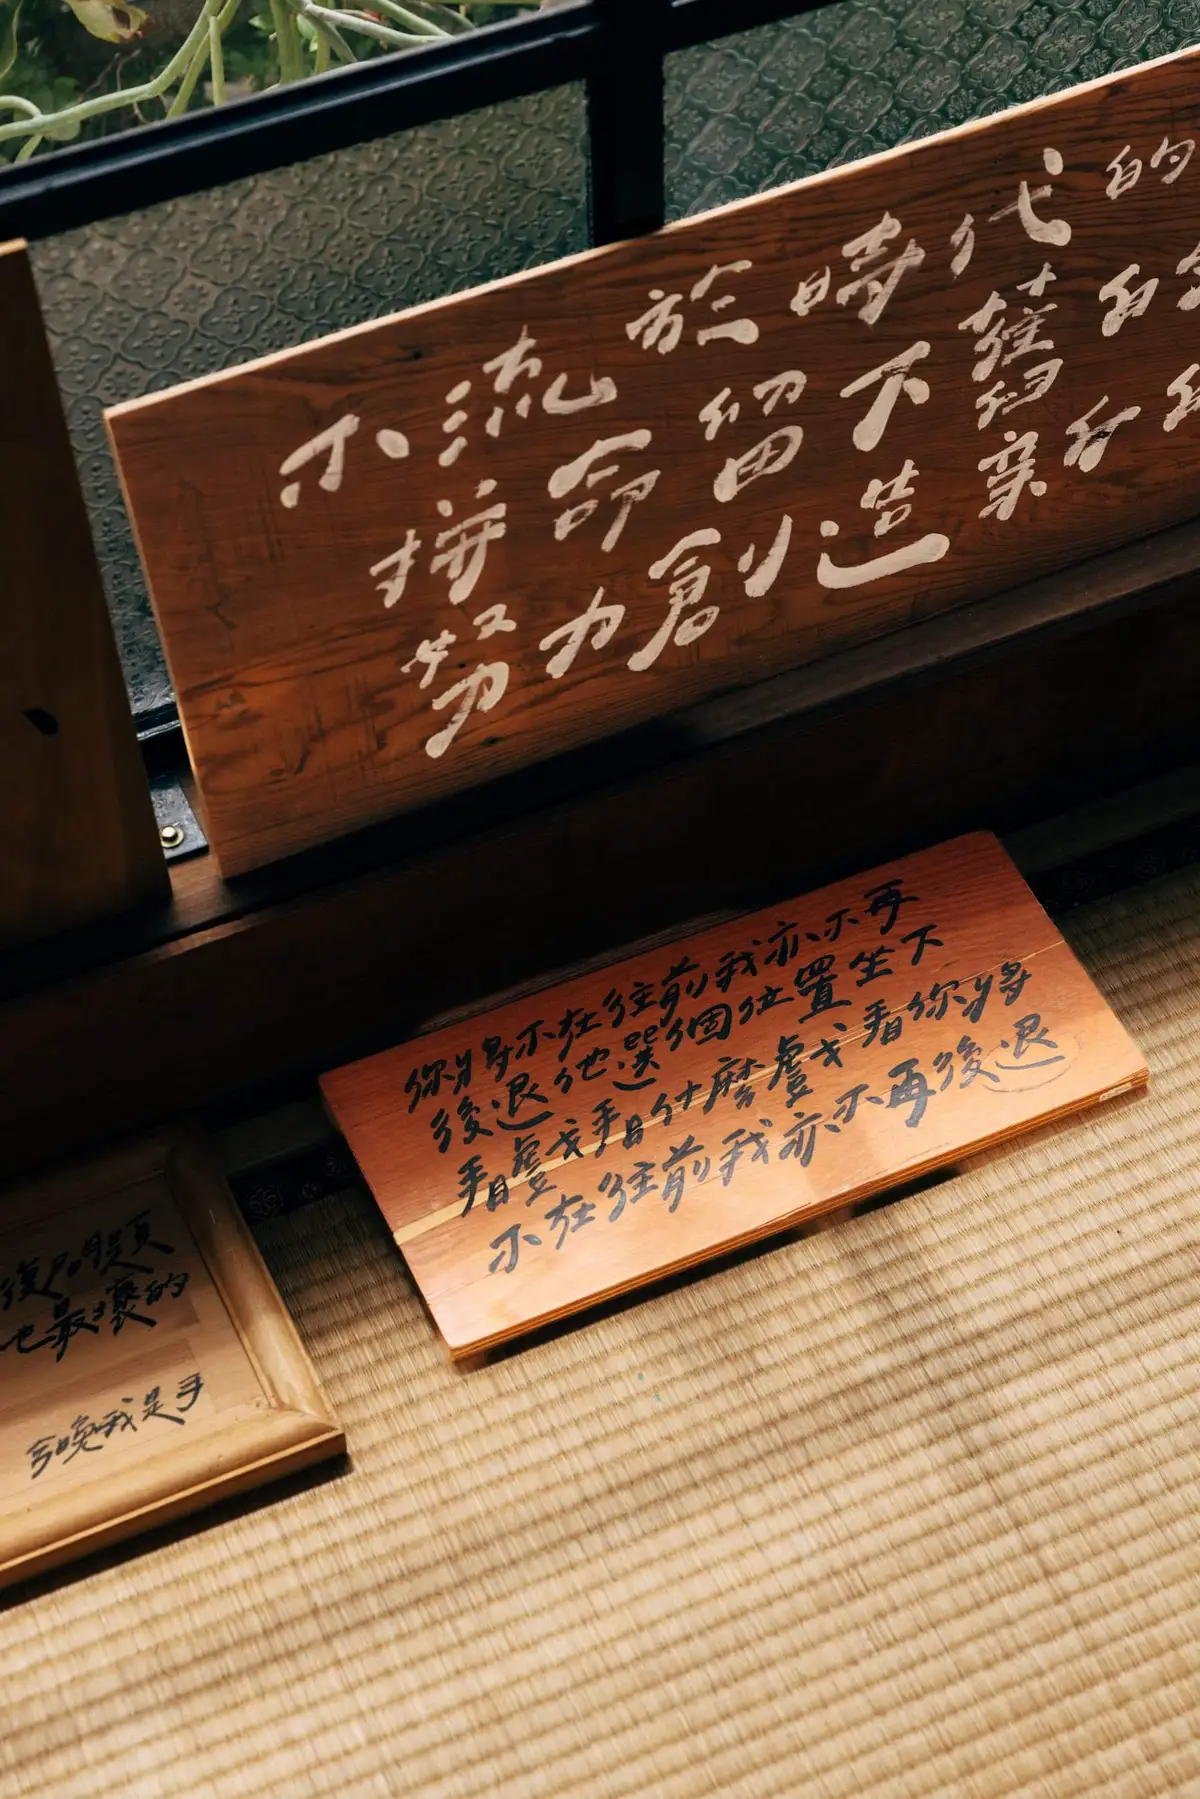 不流於時代的
拼命留下舊的
努力創造新的
你將不在往前我亦不再
後退他選個位置坐下
看戲或看什麼戲或看你將
不在往前我亦不再後退
復習題
也最壞的
今晚我是手